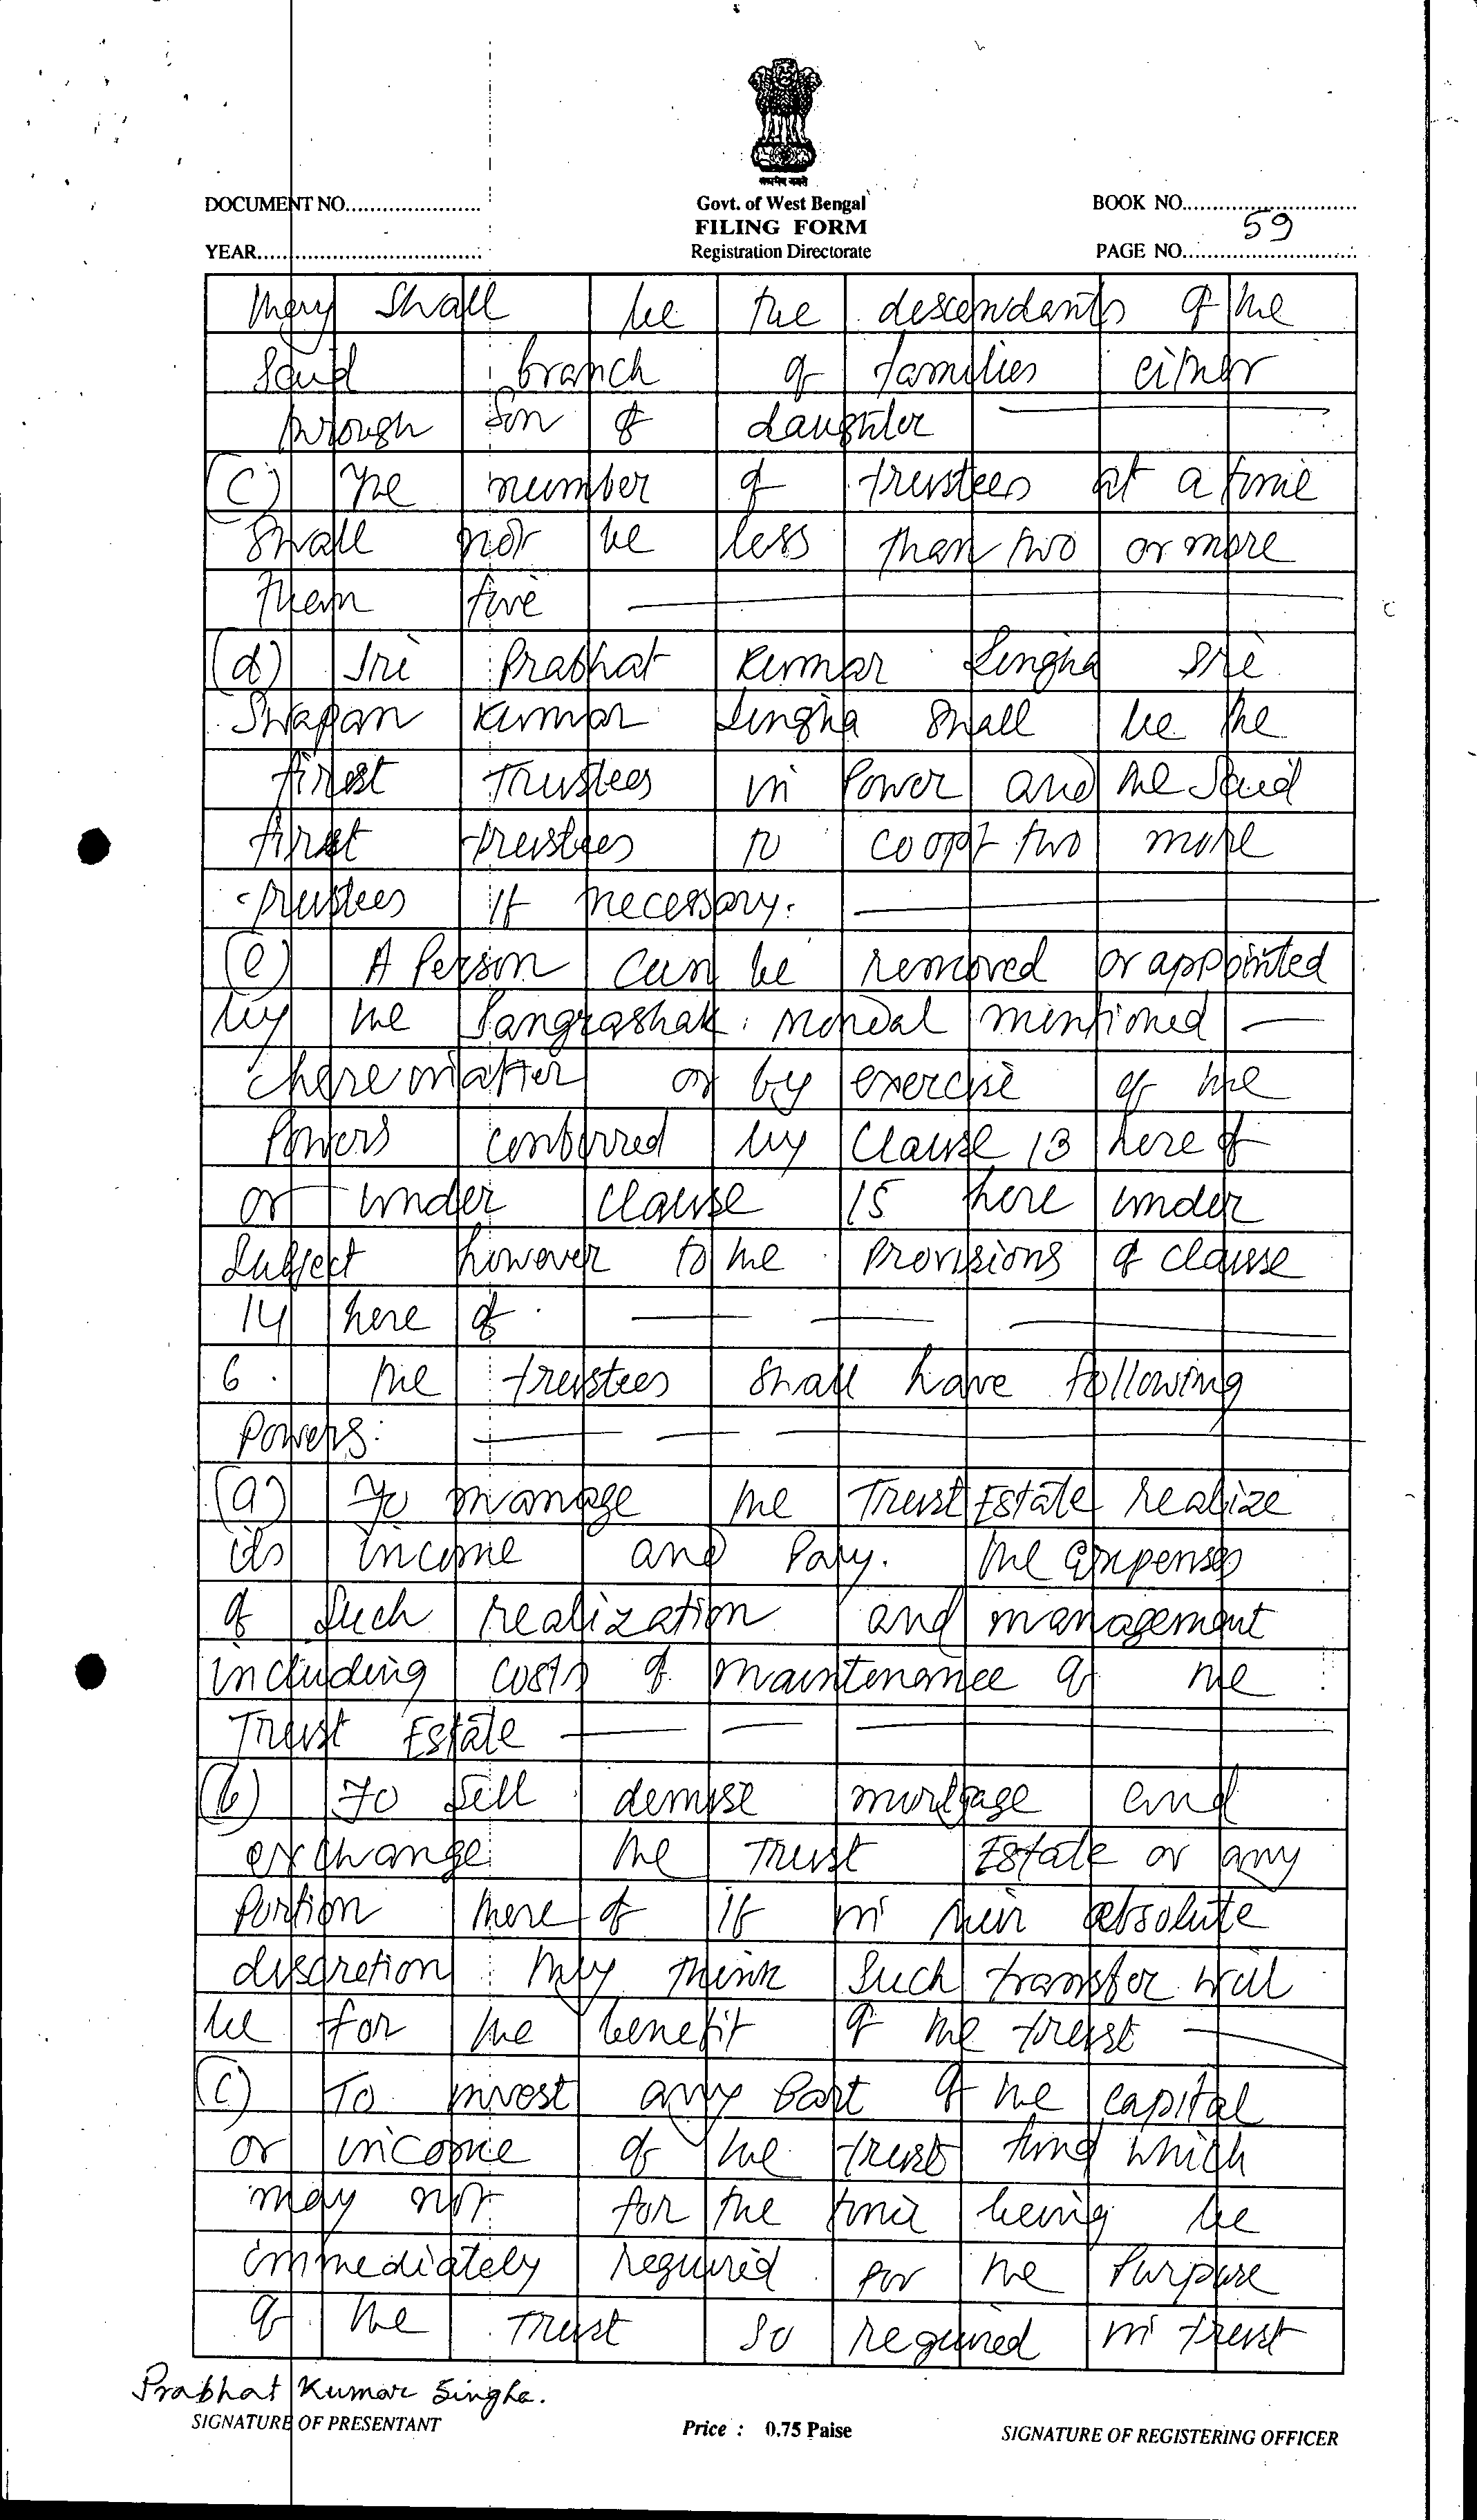 DOCUMENT NO.......................
Govt. of West Bengal
BOOK NO.............................
FILING FORM
59
YEAR......................................
Registration Directorate
PAGE NO.............................
they shall be the descendants of the
said branch of families either
through son of daughter
(c) The number of trustees at a time
shall not be less than two or more
than five
(d) Sri Prabhat Kumar Singha Sri
Swapan Kumar Singha shall be the
first Trustees in Power and the said
first trustees to coopt two more
trustees if necessary.
(e) A Person can be removed or appointed
by the Sangrashak Mondal mentioned
hereinafter or by exercise of the
Powers conferred by Clause 13 here of
or under clause 15 here under
Subject however to the Provisions of clause
14 here of
6. The trustees shall have following
Powers:
(a) To manage the Trust Estate realize
its income and Pay. the expenses
of such realization and management
including costs of maintenance of the
Trust Estate
(b) To sell demise mortgage and
exchange the Trust Estate or any
Portion there of if in their absolute
discretion they think such transfer will
be for the benefit of the trust
(c) To invest any Part of the capital
or income of the trust fund which
may not for the time being be
immediately required for the Purpose
of the Trust so required in trust
Prabhat Kumar Singha.
SIGNATURE OF PRESENTANT
Price : 0.75 Paise
SIGNATURE OF REGISTERING OFFICER